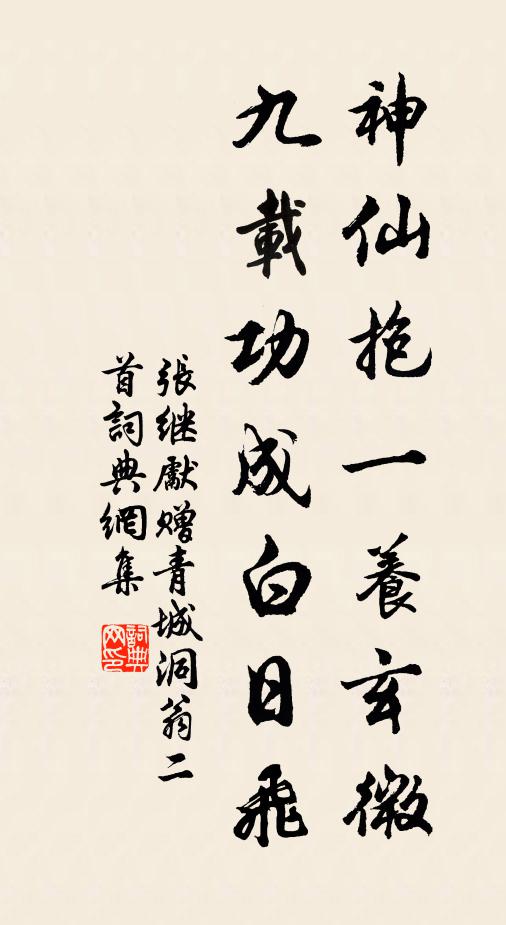 神仙抱一養玄微
九載功成白日飛
張继獻贈青城洞翁二
首詞典網集
詞典
网印